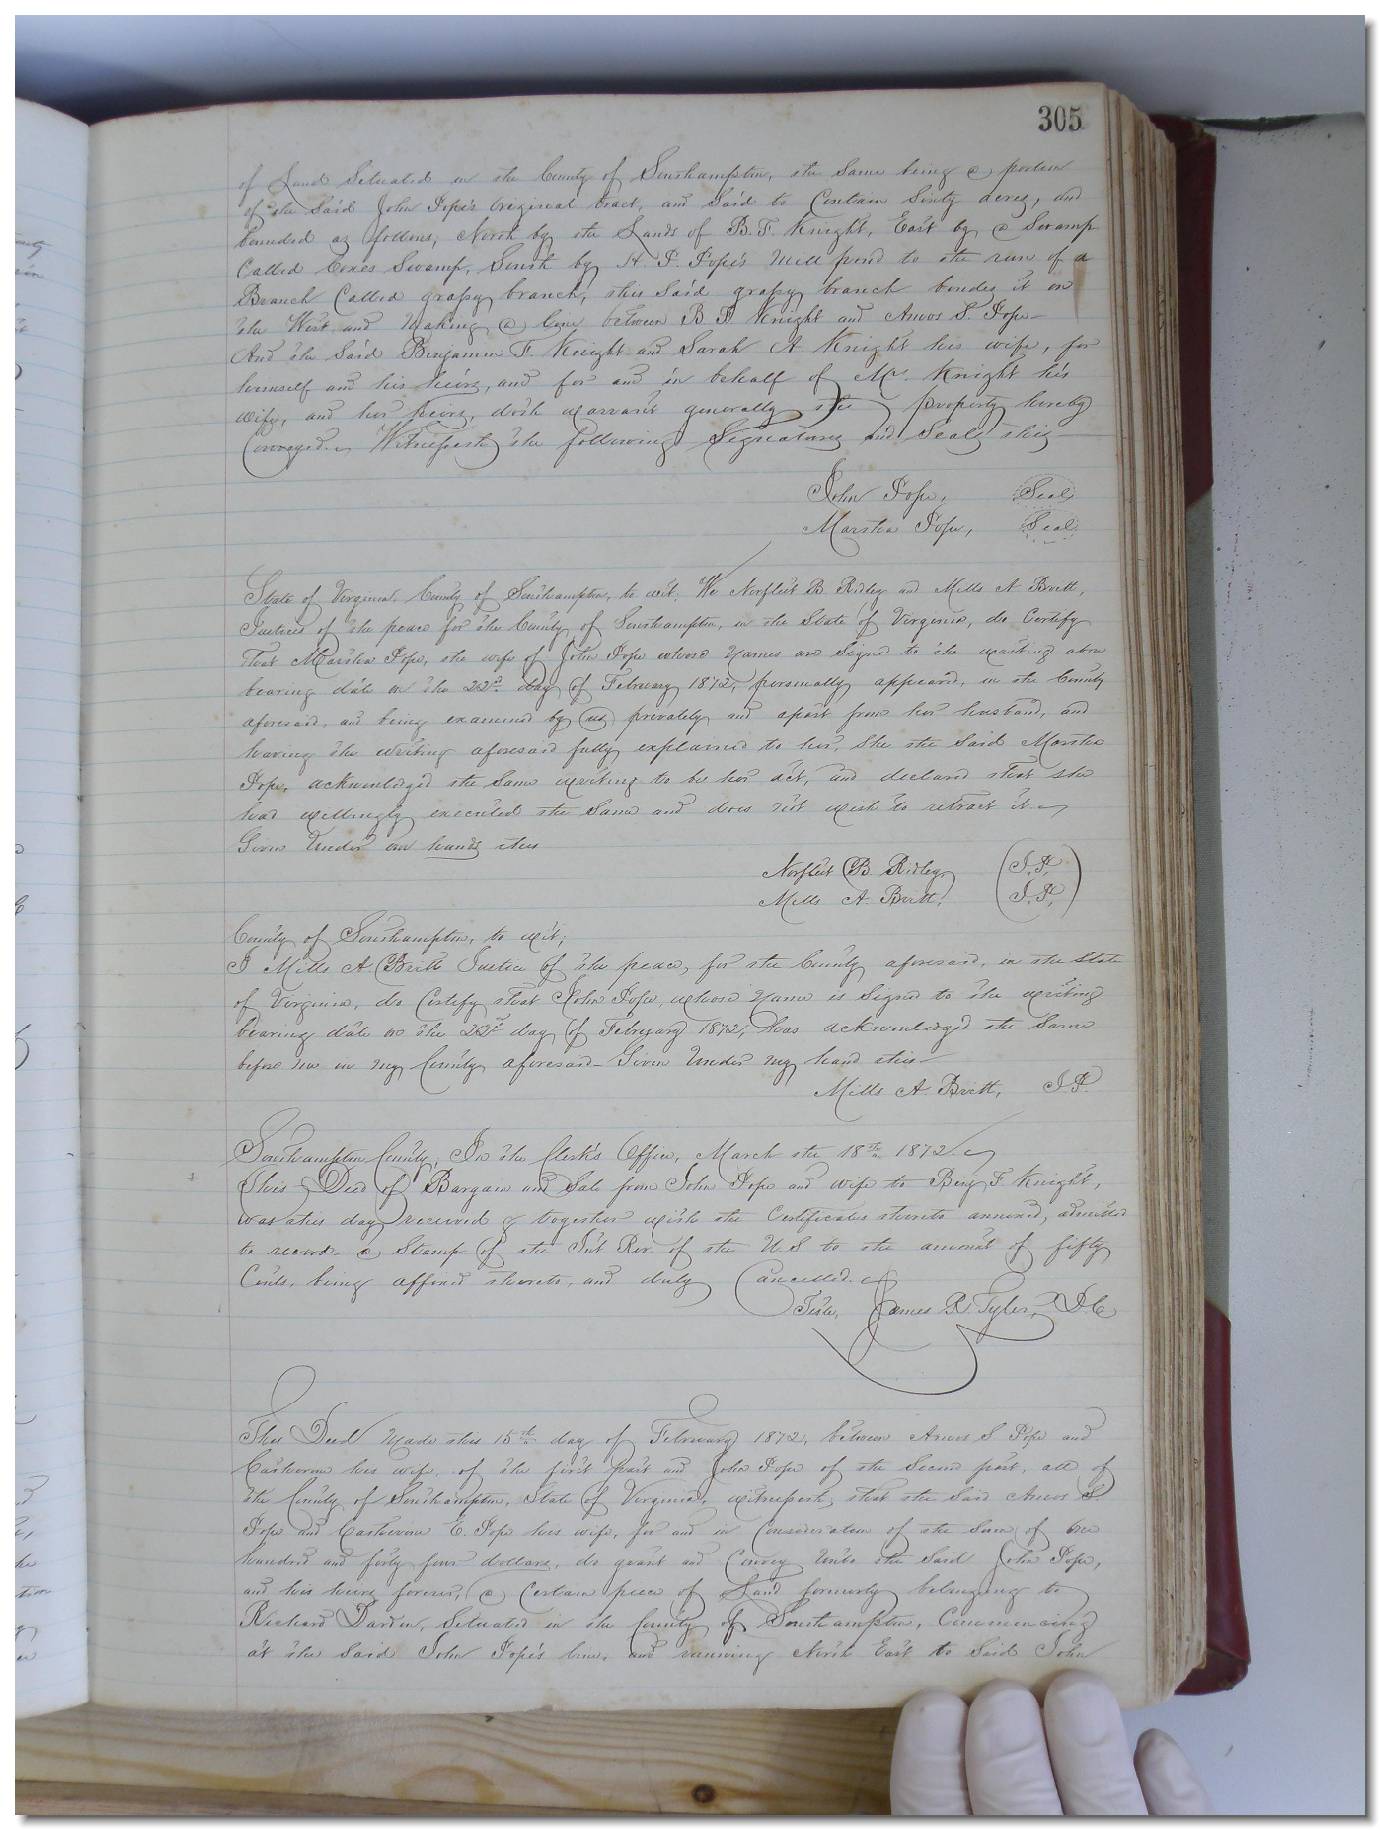 305
of Land Situated in the County of Southampton, the Same being a portion
of the Said John Pope's Original tract, and Said to Contain Sixty acres, and
bounded as follows, North by the Lands of B. F. Knight, East by a Swamp
Called Coxes Swamp, South by H. P. Pope's Mill pond to the run of a
Branch Called grassy branch, this Said grassy branch bondes it on
the West and Making a line between B F Knight and Amos S. Pope—
And the Said Benjamin F. Knight and Sarah A Knight his wife, for
himself and his heirs, and for and in behalf of Mrs. Knight his
wife, and her heirs, doth warrant generally the property hereby
Conveyed. Witnesseth the following Signatures and Seals this—
John Pope, Seal
Martha Pope, Seal
State of Virginia, County of Southampton, to wit. We Norfleet B Ridley and Mills A Britt,
Justices of the peace for the County of Southampton, in the State of Virginia, do Certify
that Martha Pope, the wife of John Pope whose Names are Signed to the writing above
bearing date on the 22d. day of February 1872, personally appeared, in the County
aforesaid, and being examined by us privately and apart from her husband, and
having the writing aforesaid fully explained to her, She the Said Martha
Pope, acknowledged the Same writing to be her act, and declared that she
had willingly executed the Same and does not wish to retract it.
Given Under our hands this
Norfleet B. Ridley J.P.
Mills A. Britt. J.P.
County of Southampton, to wit;
I Mills A Britt Justice of the peace, for the County aforesaid, in the State
of Virginia, do Certify that John Pope, whose Name is Signed to the writing
bearing date on the 22d day of February 1872, has acknowledged the Same
before me in my County aforesaid— Given Under my hand this—
Mills A. Britt, J.P.
Southampton County, In the Clerk's Office, March the 18th 1872
This Deed of Bargain and Sale from John Pope and wife to Benj F Knight,
was this day received & together with the Certificates thereto annexed, admitted
to record. a Stamp of the Int Rev. of the U S to the amount of fifty
Cents, being affixed thereto, and duly Cancelled.
Teste, James R Tyler, D.C
This Deed Made this 15th day of February 1872, between Amos S Pope and
Catherine his wife, of the first part and John Pope of the Second part, all of
the County of Southampton, State of Virginia, witnesseth, that the Said Amos S
Pope and Catherine E. Pope his wife, for and in Consideration of the Sum of One
hundred and forty four dollars, do grant and Convey Unto the Said John Pope,
and his heirs forever, a Certain piece of Land formerly belonging to
Richard Darden, Situated in the County of Southampton, Commencing
at the Said John Pope's line, and running North East to Said John